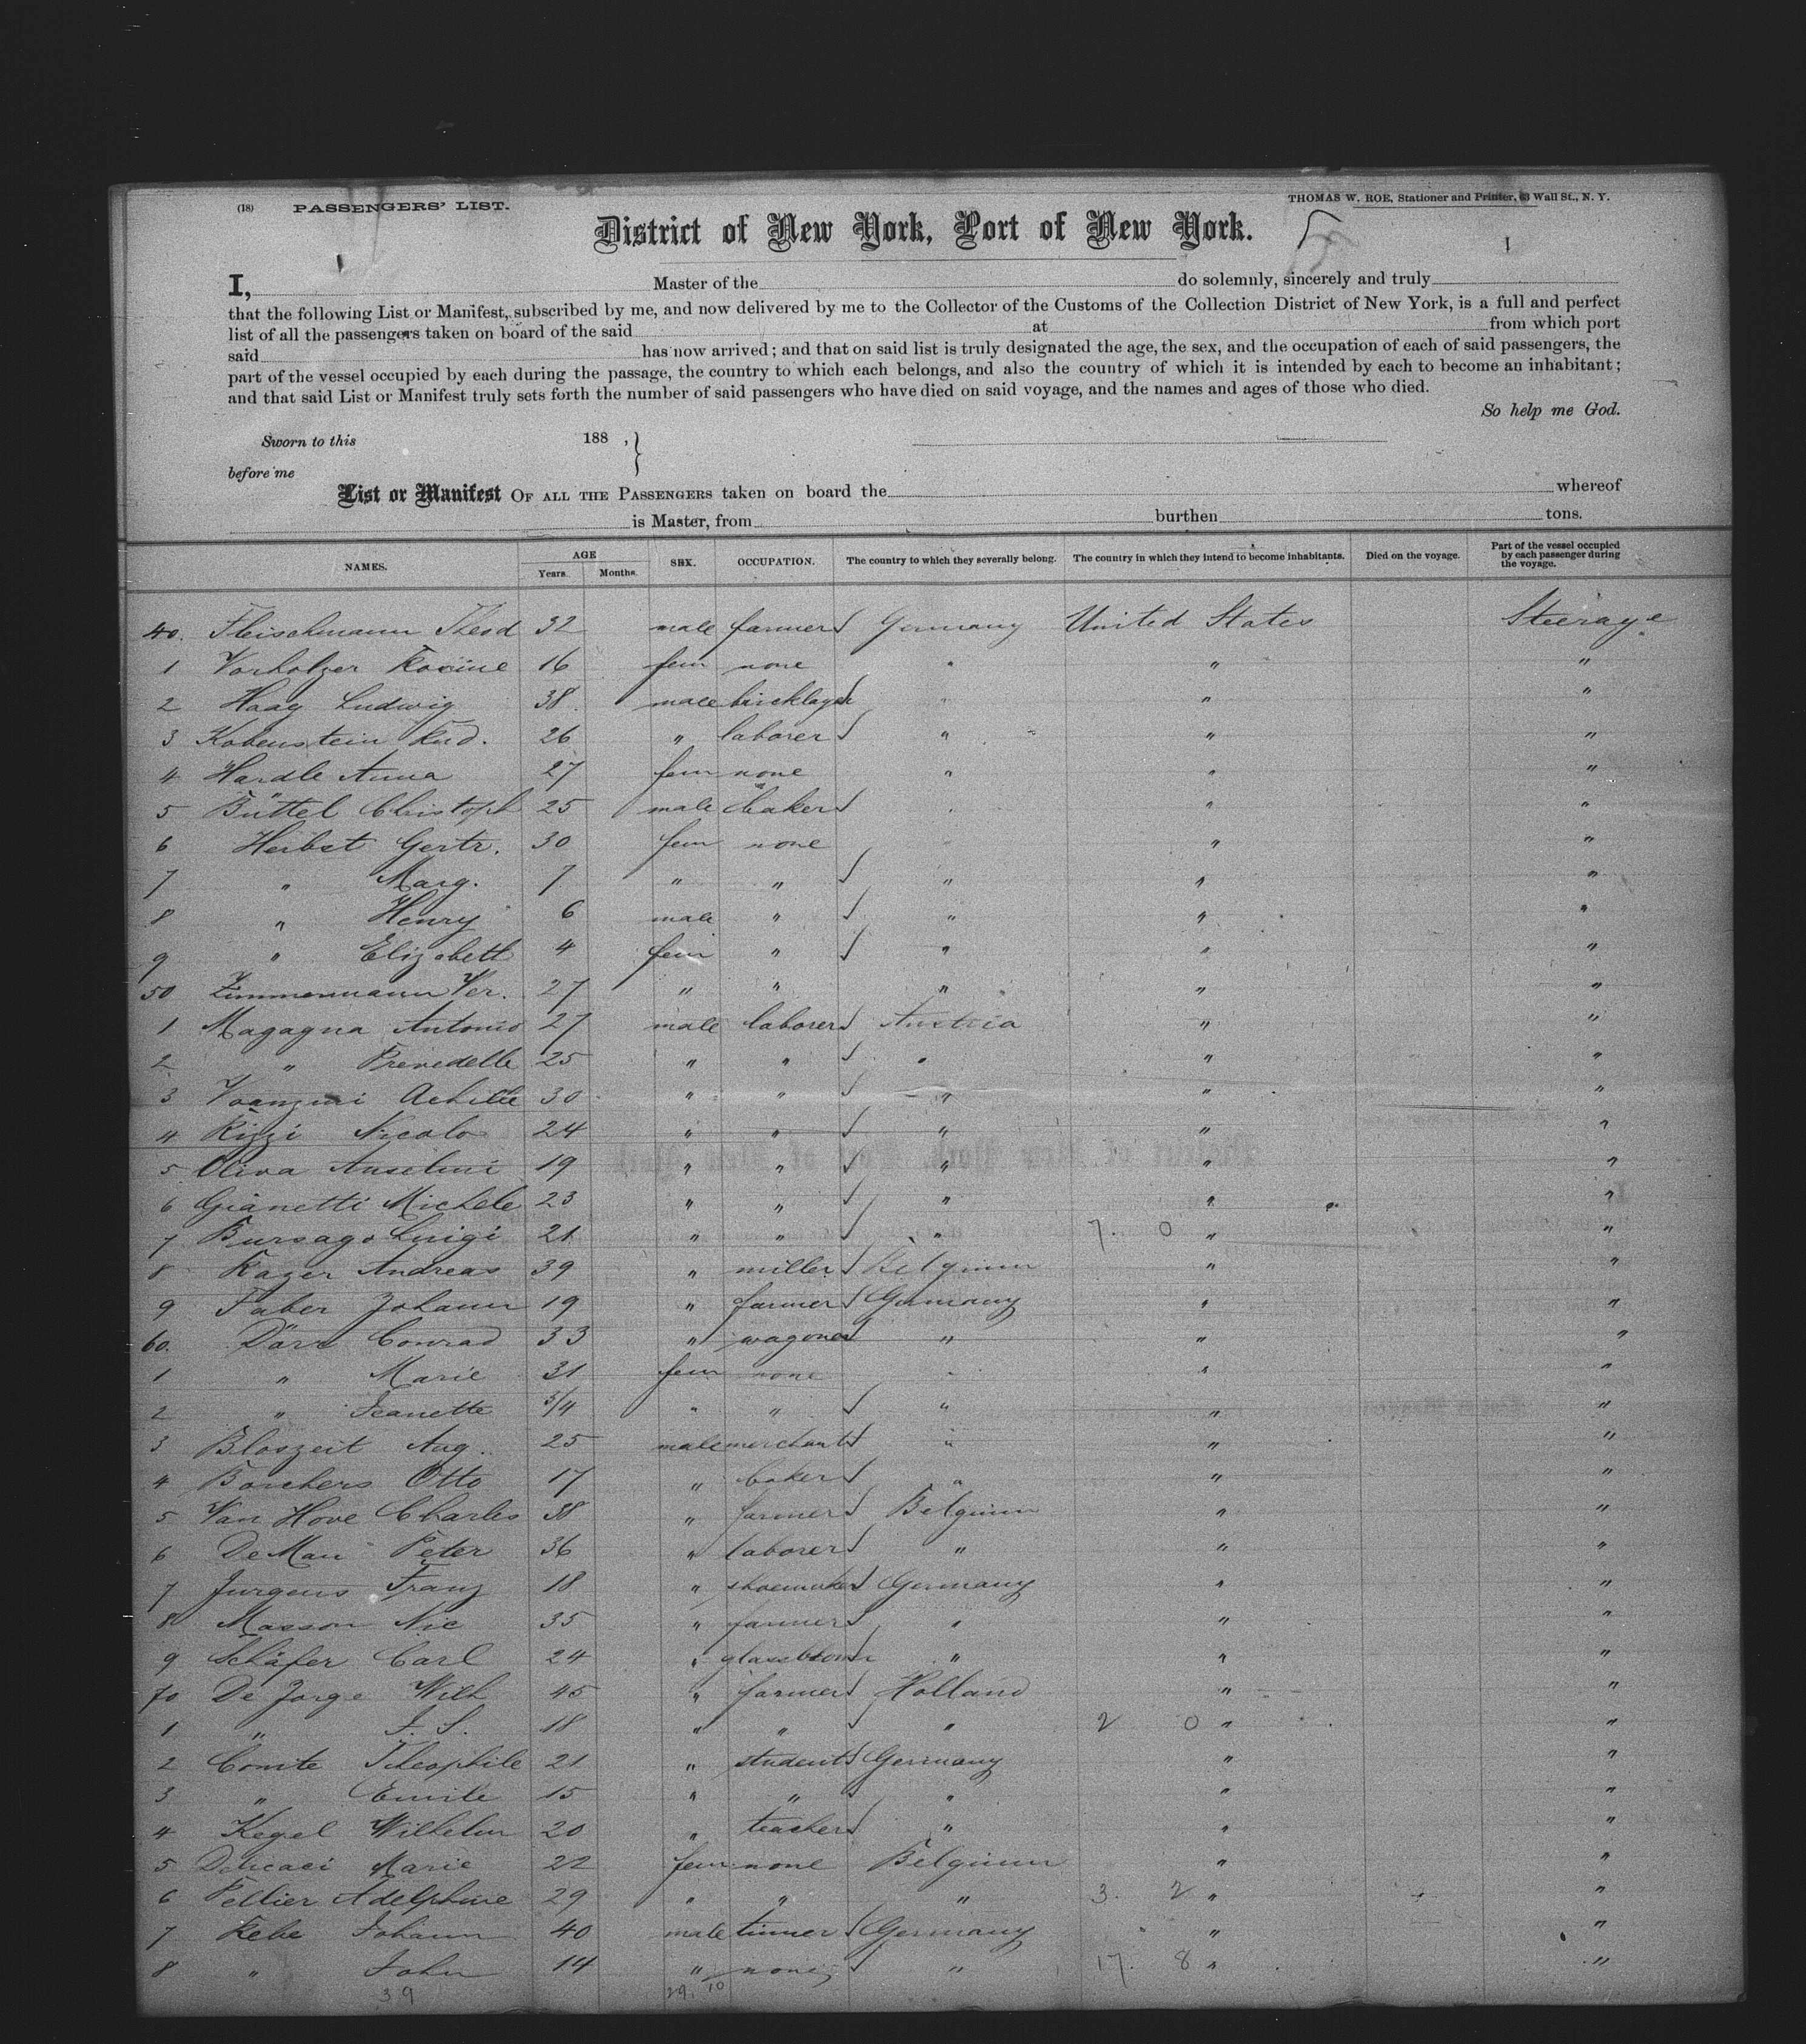 (18) PASSENGERS' LIST.
THOMAS W. ROE, Stationer and Printer, 63 Wall St., N. Y.
District of New York, Port of New York.
I, Master of the do solemnly, sincerely and truly
that the following List or Manifest, subscribed by me, and now delivered by me to the Collector of the Customs of the Collection District of New York, is a full and perfect
list of all the passengers taken on board of the said at from which port
said has now arrived; and that on said list is truly designated the age, the sex, and the occupation of each of said passengers, the
part of the vessel occupied by each during the passage, the country to which each belongs, and also the country of which it is intended by each to become an inhabitant;
and that said List or Manifest truly sets forth the number of said passengers who have died on said voyage, and the names and ages of those who died.
So help me God.
Sworn to this 188 , }
before me
List or Manifest OF ALL THE PASSENGERS taken on board the whereof
is Master, from burthen tons.
NAMES. AGE Years. Months. SEX. OCCUPATION. The country to which they severally belong. The country in which they intend to become inhabitants. Died on the voyage. Part of the vessel occupied by each passenger during the voyage.
40. Fleischmann Theod 32 male farmer Germany United States Steerage
1 Vorholzer Rosine 16 fem none " " "
2 Haag Ludwig 38. male bricklayer " " "
3 Kobenstein Rud. 26 " laborer " " "
4 Hardle Anna 27 fem none " " "
5 Büttel Christoph 25 male baker " " "
6 Herbst Gertr. 30 fem none " " "
7 " Marg. 7 " " " " "
8 " Henry 6 male " " " "
9 " Elizabeth 4 fem " " " "
50 Zimmermann Ver. 27 " " " " "
1 Magagna Antonio 27 male laborer Austria " "
2 " Prevedelle 25 " " " " "
3 Achille 30 " " " " "
4 Rizzi Nicolo 24 " " " " "
5 Oliva Anselmi 19 " " " " "
6 Gianetti Michele 23 " " " " "
7 Bursago Luigi 21 " " " 7. 0 " "
8 Kager Andreas 39 " miller Belgium " "
9 Faber Johann 19 " farmer Germany " "
60. Dörr Conrad 33 " wagoner " " "
1 " Marie 31 fem none " " "
2 " Jeanette 3/4 " " " " "
3 Bloszeit Aug. 25 male merchant " " "
4 Borchers Otto 17 " baker " " "
5 Van Hove Charles 38 " farmer Belgium " "
6 De Man Peter 36 " laborer " " "
7 Jurgens Franz 18 " shoemaker Germany " "
8 Masson Nic 35 " farmer " " "
9 Schäfer Carl 24 " " " "
70 De Jorge Wilh 45 " farmer Holland " "
1 " J. S. 18 " " " 2 0 " "
2 Comte Theophile 21 " student Germany " "
3 " Emile 15 " " " " "
4 Kegel Wilhelm 20 " teacher " " "
5 Marie 22 fem none Belgium " "
6 Pellier Adelphine 29 " " " 3. 2 " "
7 Rebe Johann 40 male tinner Germany " "
8 " John 14 " none " 17. 8 " "
39 29. 10